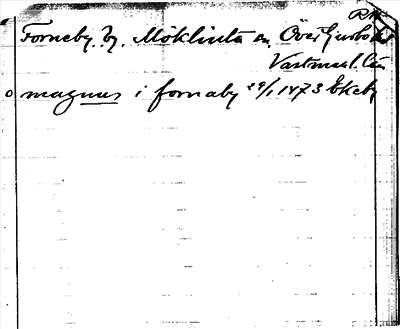 Forneby, by. Möklinta sn Över
Västmanl. län
o magnus i fornaby 29/1 1473 Ekeby